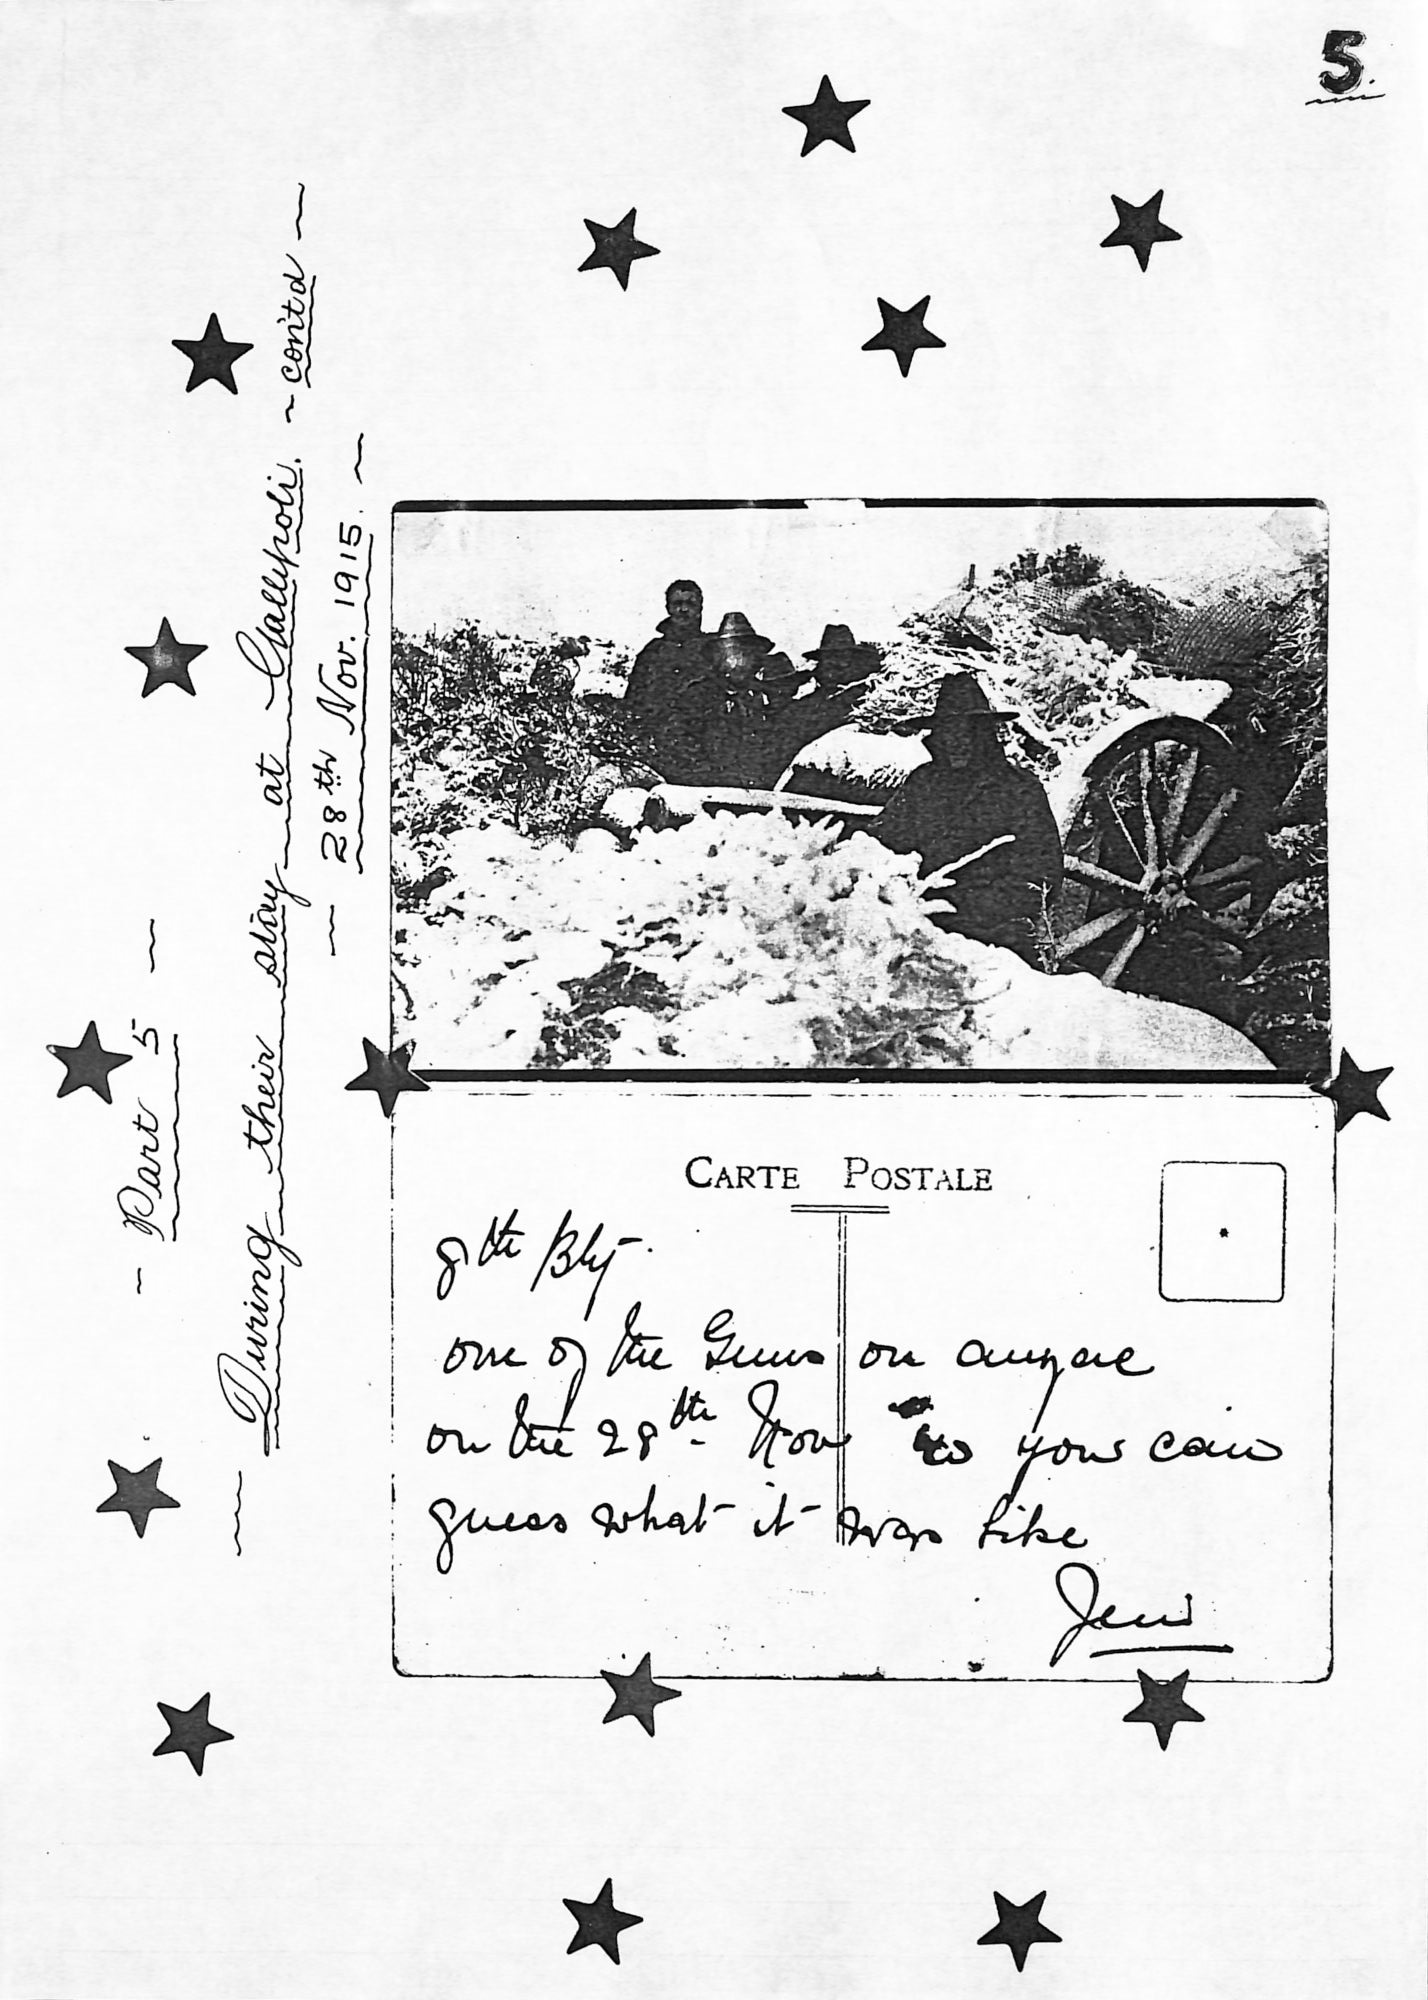 5.
~ Part 5 ~
~ During their stay at Gallipoli. ~ cont'd ~
~ 28th Nov. 1915. ~
CARTE POSTALE
8th Bty.
one of the Guns on anzac
on the 28th Nov so you can
guess what it was like